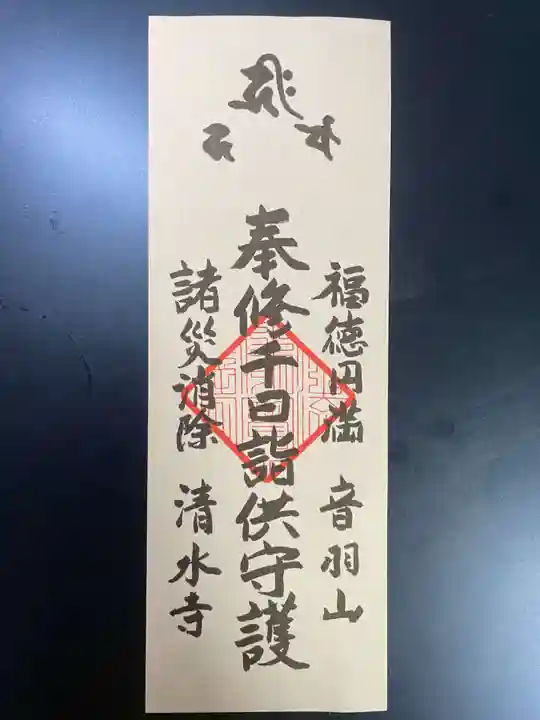 福徳円満 音羽山
奉修千日詣供守護
諸災消除 清水寺